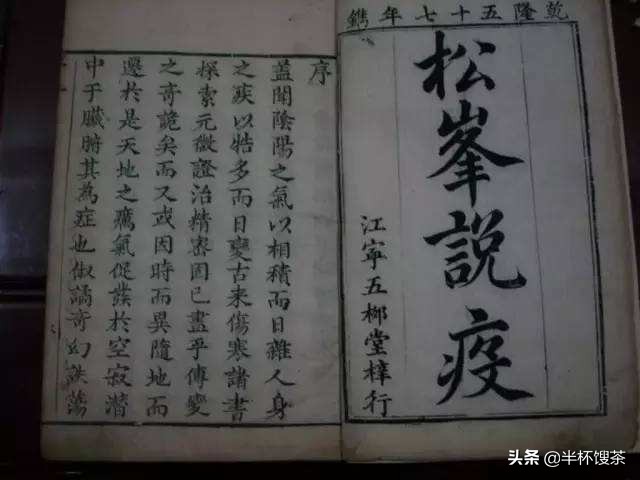 乾隆五十七年鐫
松峯說疫
江寧五柳堂梓行
序
蓋聞陰陽之氣以相積而日雜人身
之疾以牿多而日變古来傷寒諸書
探索元微證治精密固已盡乎傳變
之奇詭矣而又或因時而異隨地而
遷於是天地之癘氣促發於空寂潛
中于臟腑其為症也俶譎奇幻詄蕩
头条 @半杯馊茶